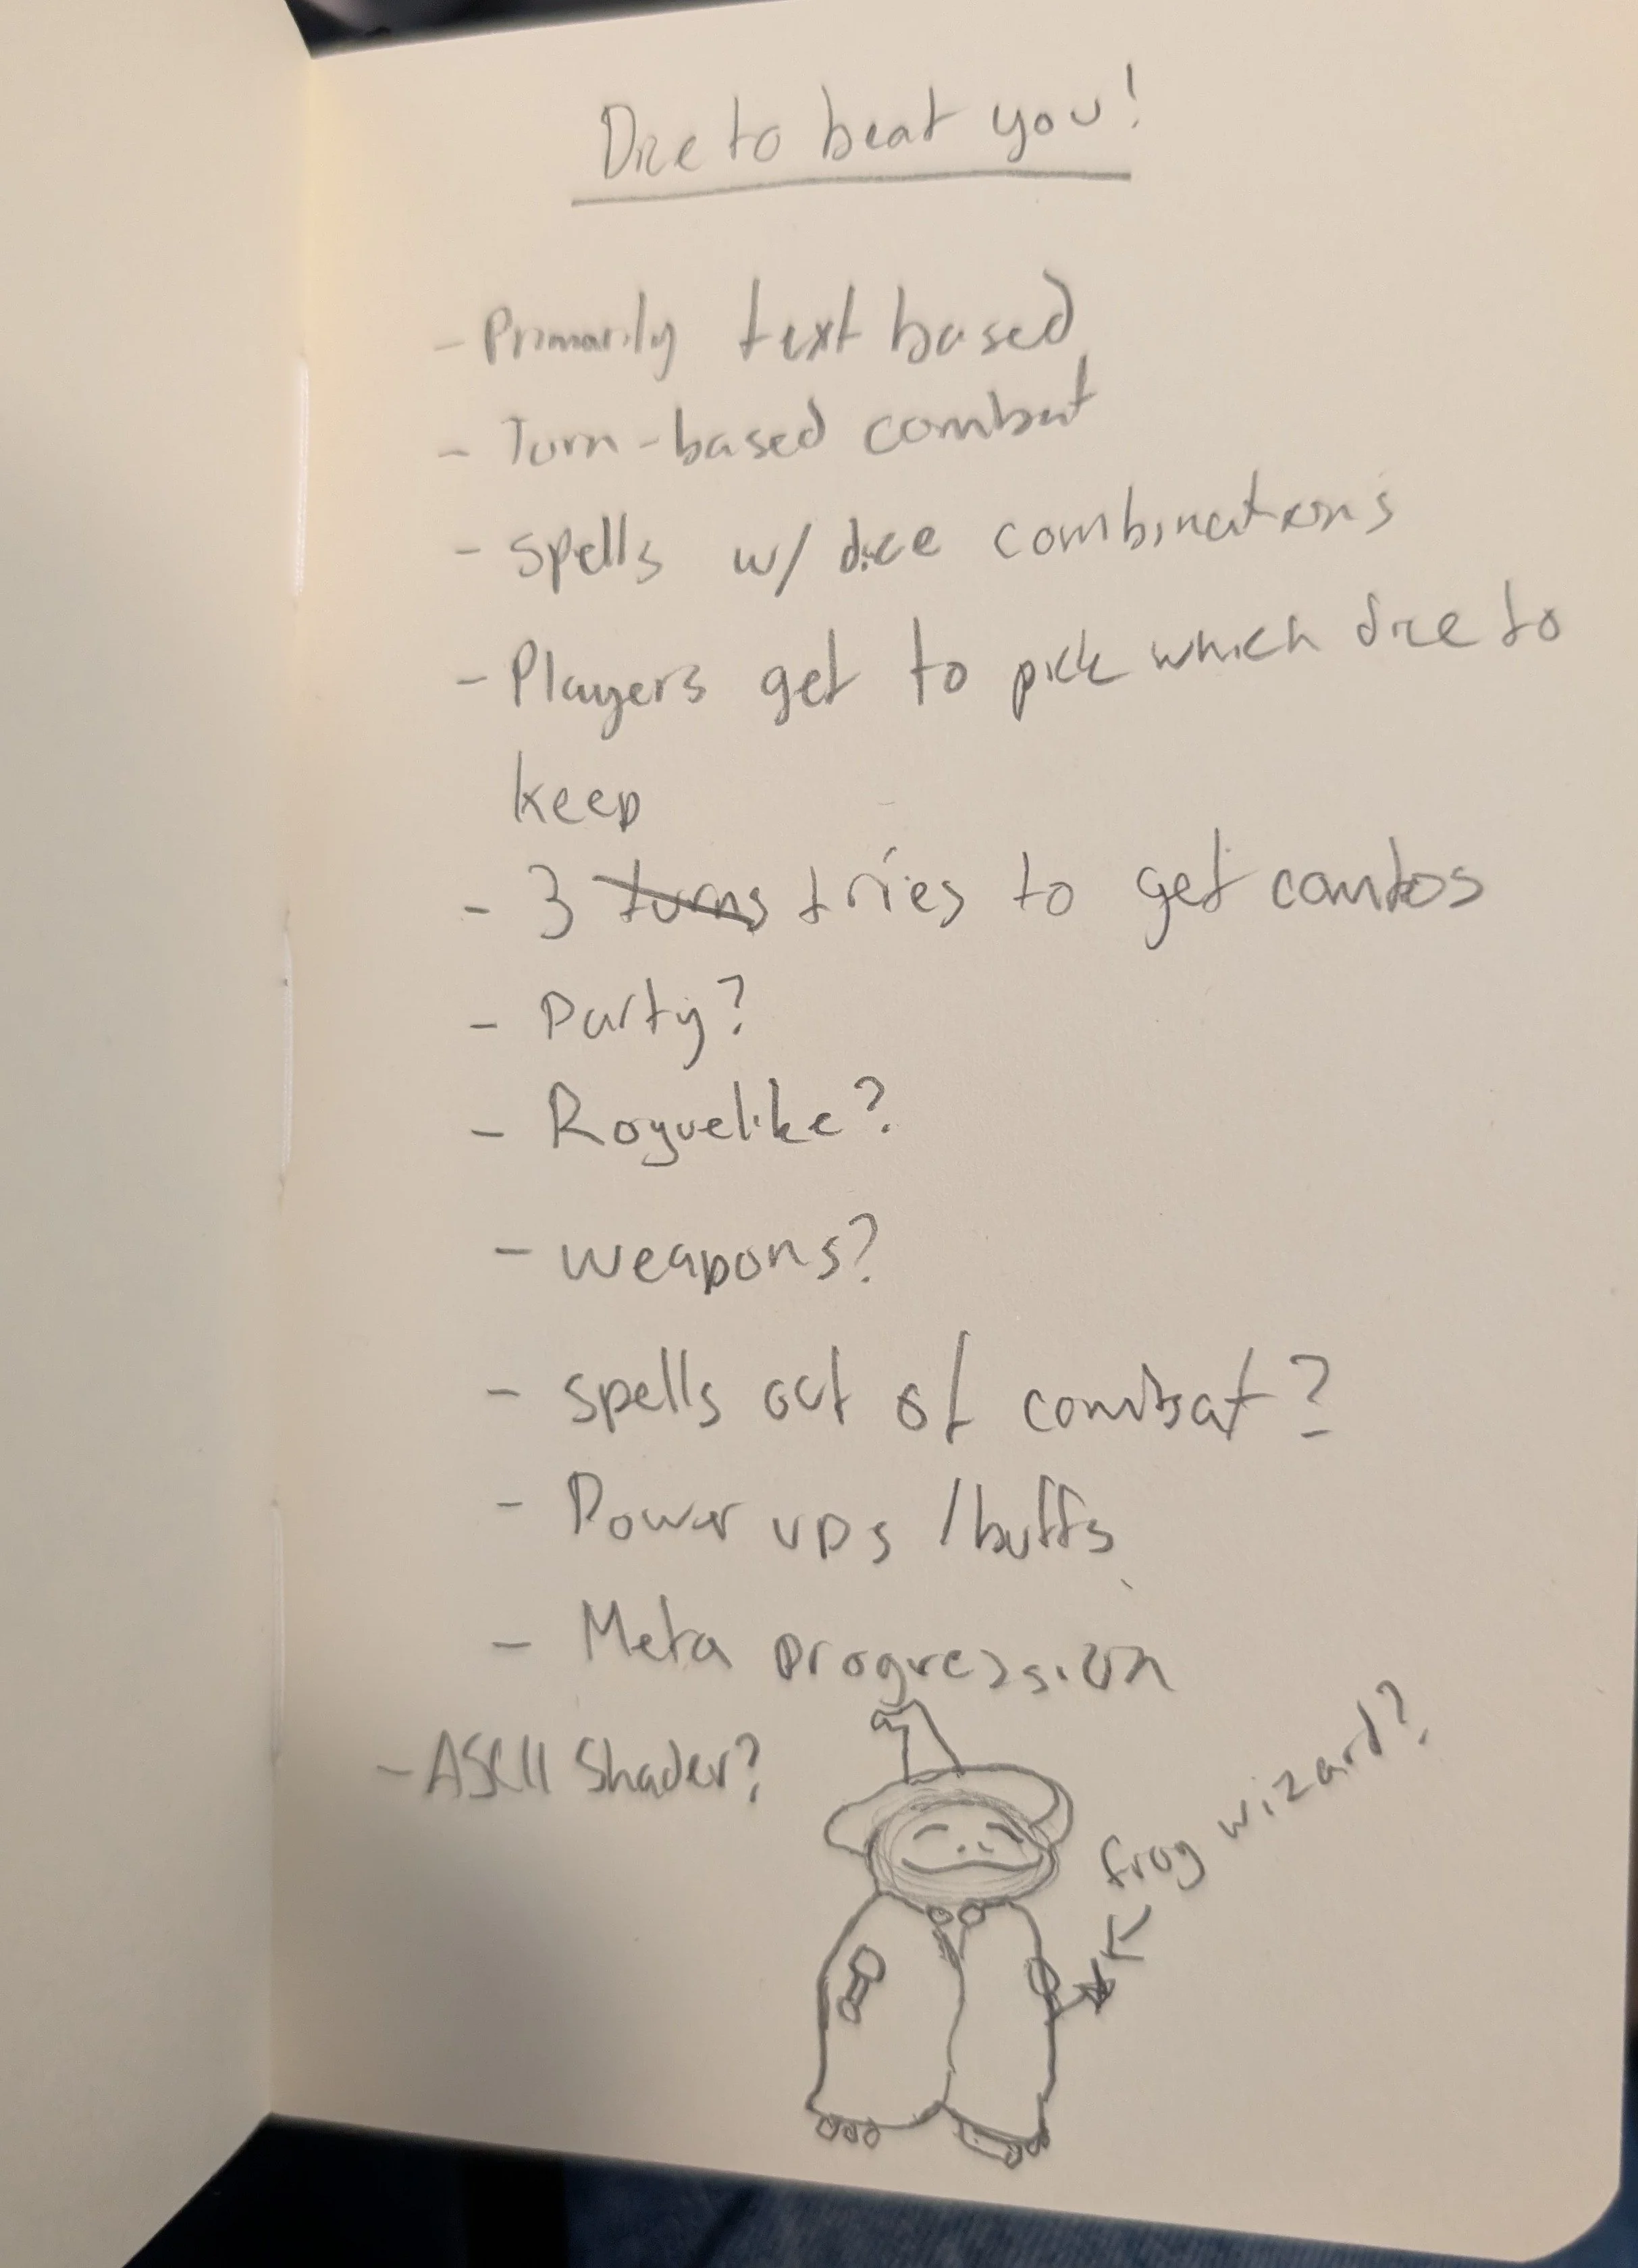 Dice to beat you!
- Primarily text based
- Turn-based combat
- spells w/ dice combinations
- Players get to pick which dice to
keep
- 3 turns tries to get combos
- Party?
- Roguelike?
- weapons?
- spells out of combat?
- Power ups / buffs
- Meta progression
- ASCII Shader?
frog wizard?